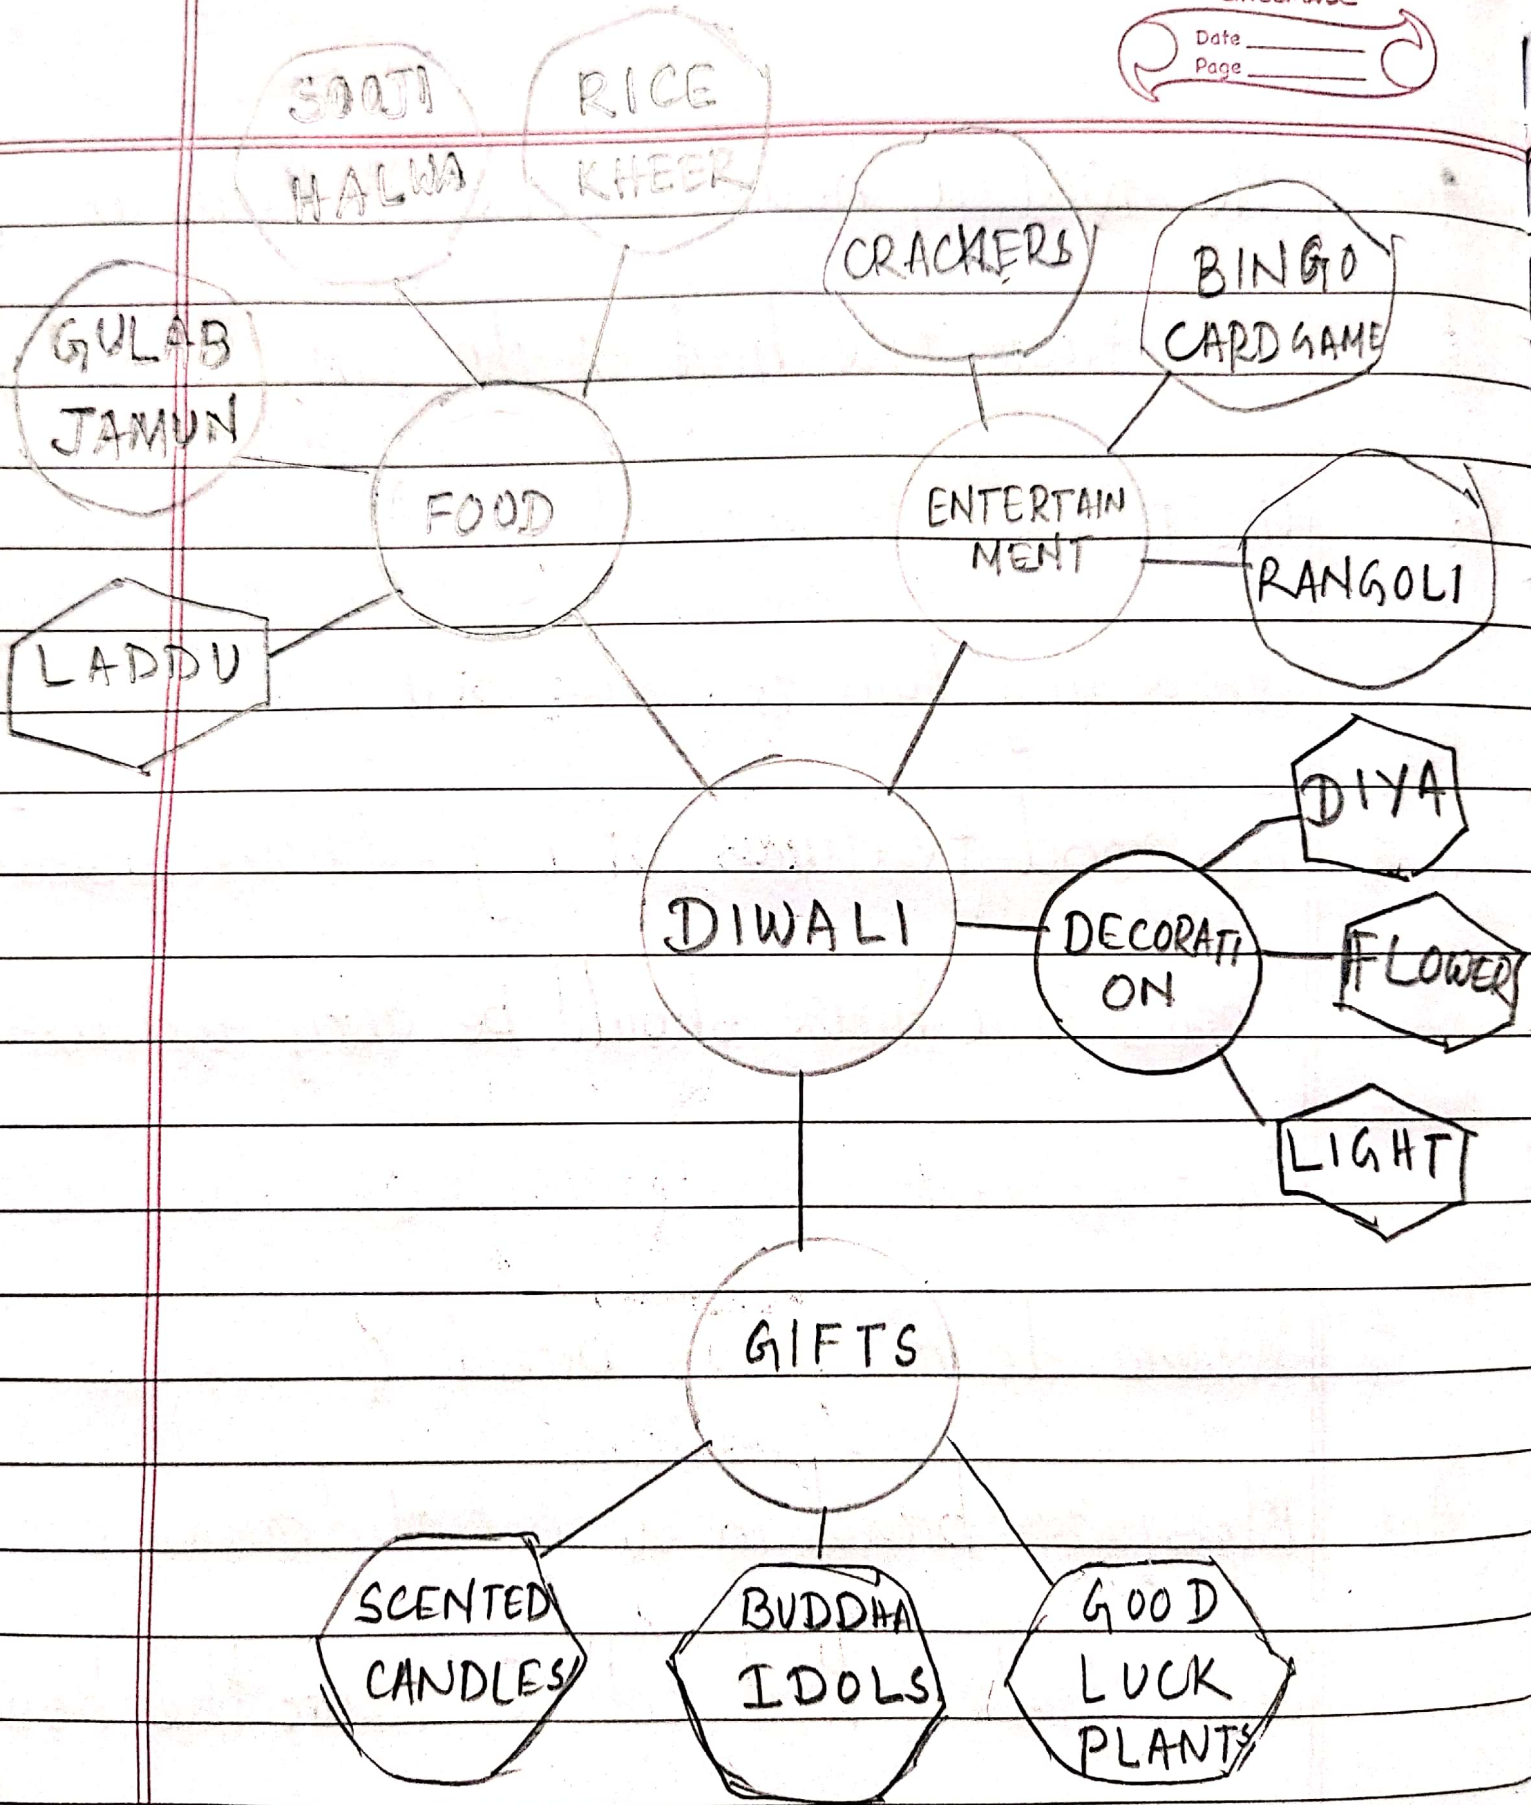 Date
Page
SOOJI
HALWA
RICE
KHEER
CRACKERS
BINGO
CARD GAME
GULAB
JAMUN
FOOD
ENTERTAIN
MENT
RANGOLI
LADDU
DIYA
DIWALI
DECORATI
ON
FLOWERS
LIGHT
GIFTS
SCENTED
CANDLES
BUDDHA
IDOLS
GOOD
LUCK
PLANTS